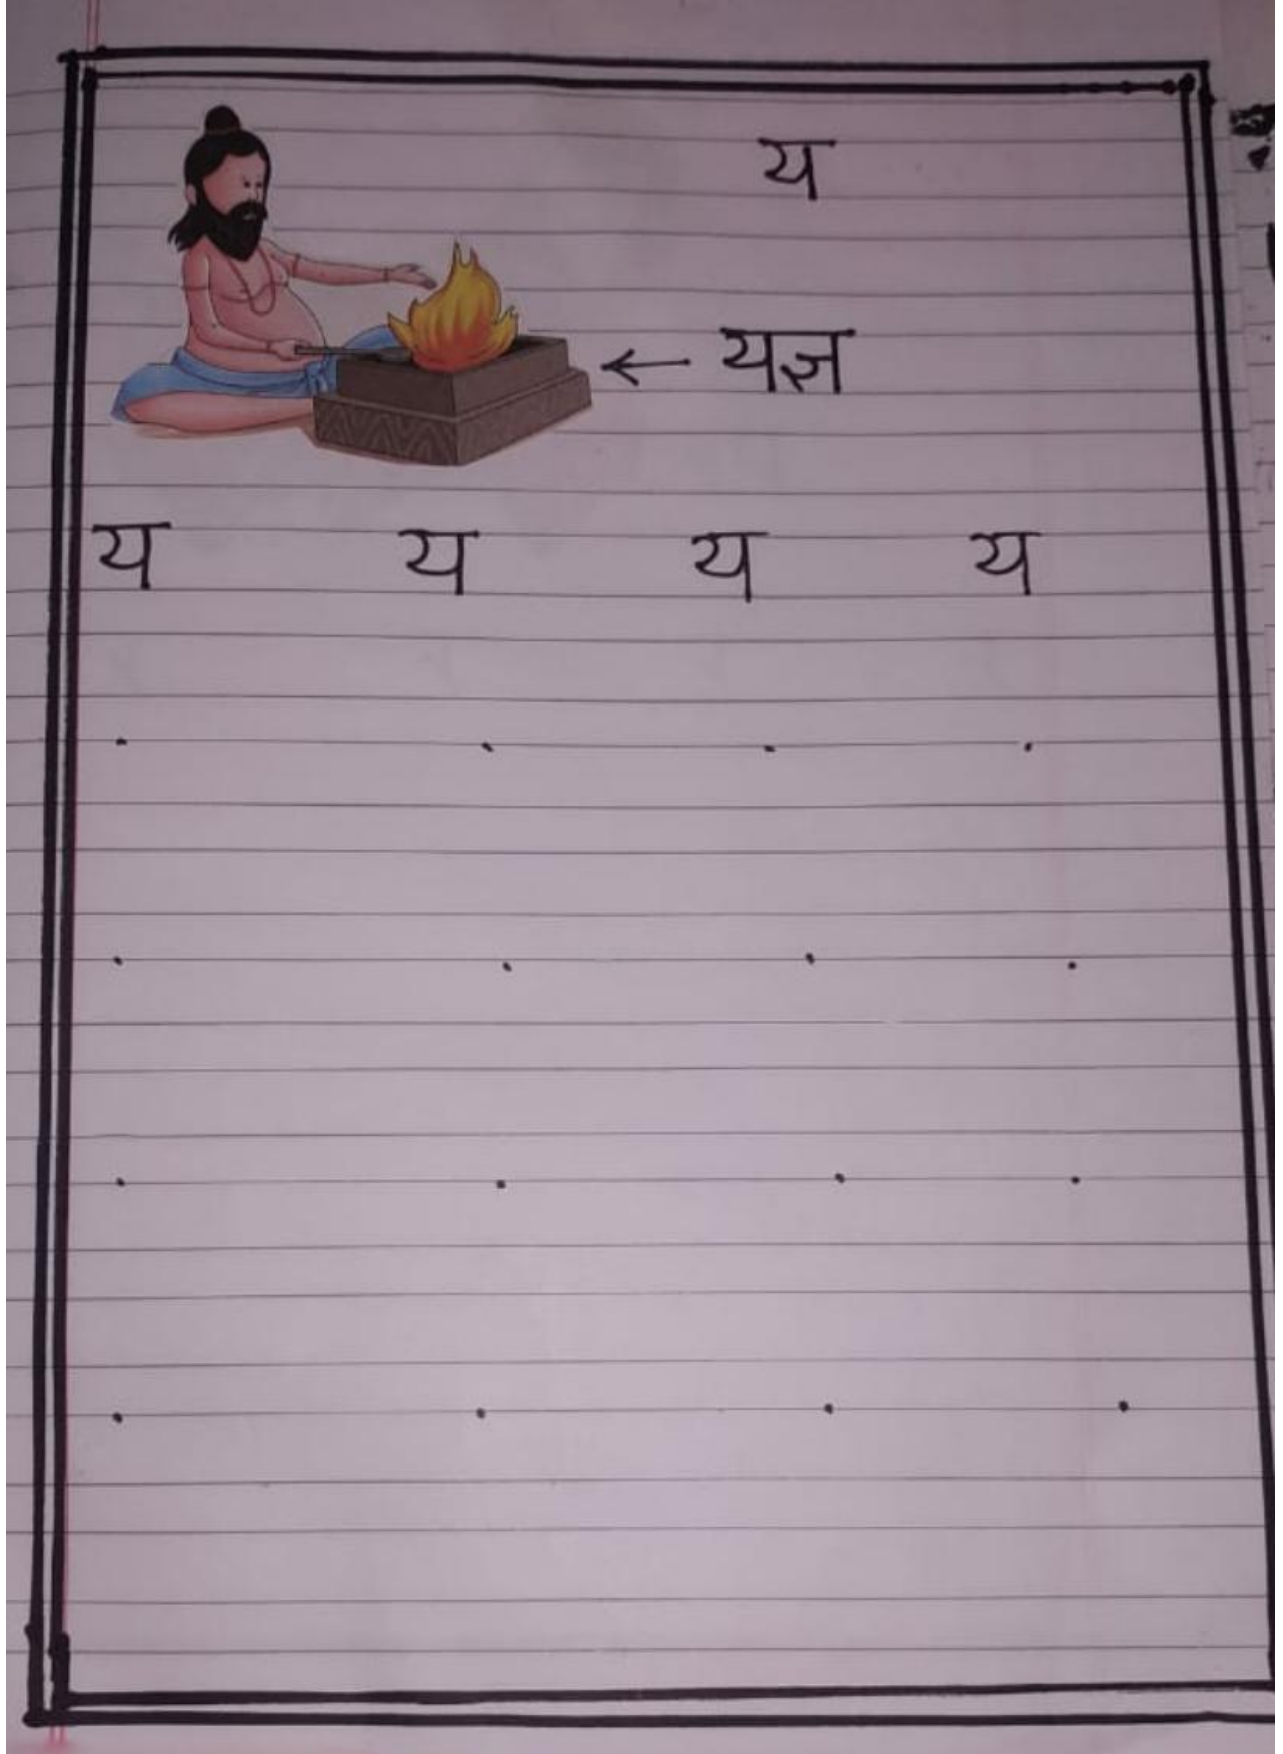 य
← यज्ञ
य य य य